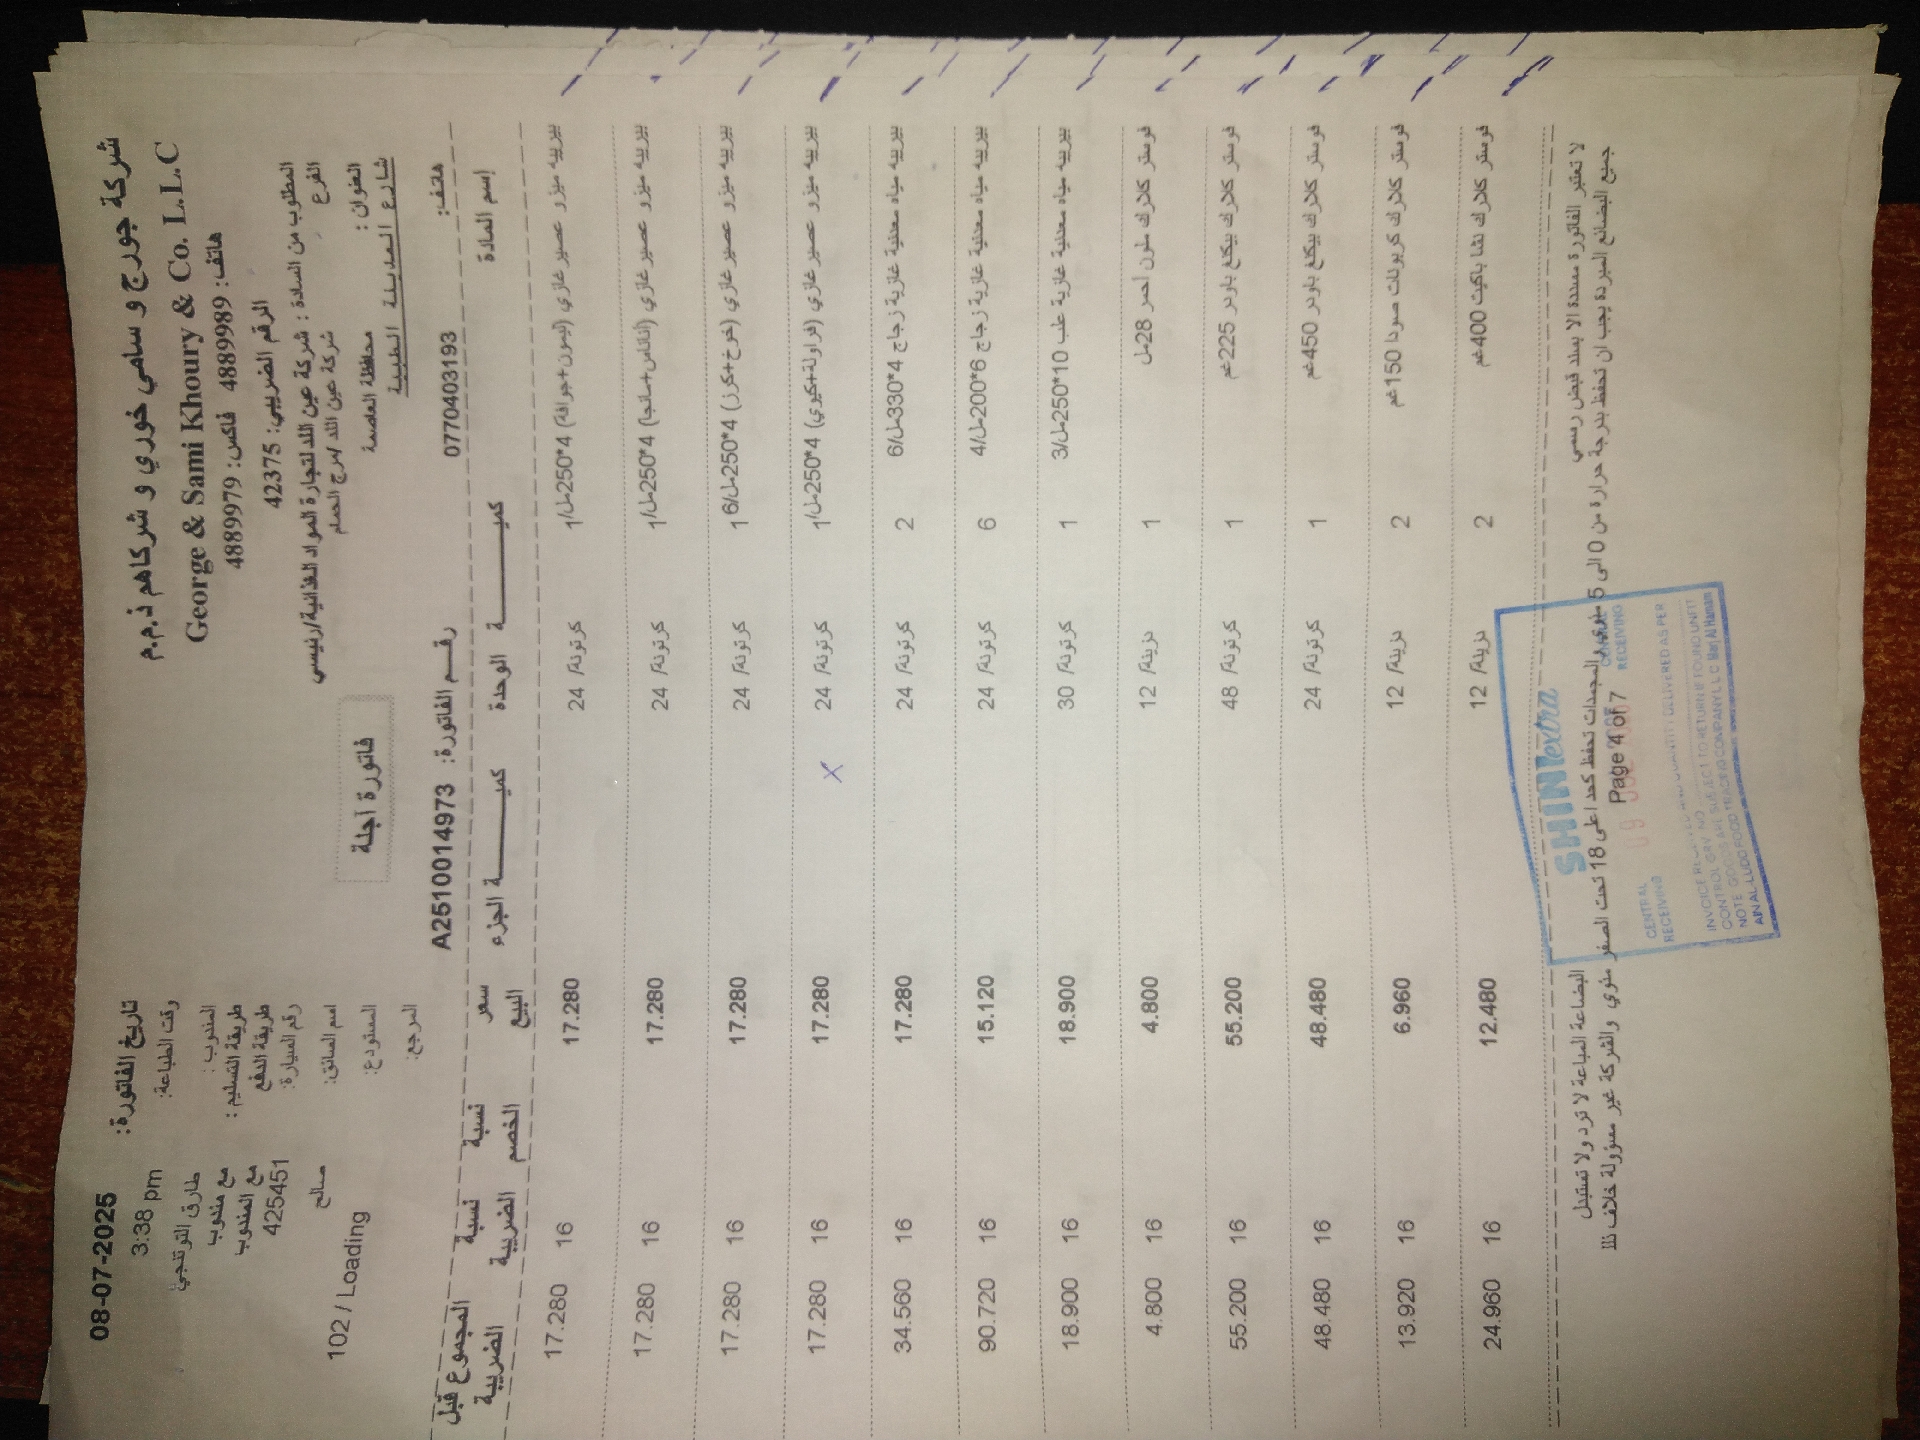 شركة جورج و سامي خوري و شركاهم ذ.م.م
George & Sami Khoury & Co. L.L.C
هاتف: 4889989 فاكس: 4889979
الرقم الضريبي: 42375
المطلوب من السادة : شركة عين اللد لتجارة المواد الغذائية/رئيسي
الفرع شركة عين اللد /مرج الحمام
العنوان : محافظة العاصمة
شارع المدينة الطبية
هاتف: 0770403193
فاتورة آجلة
رقم الفاتورة: A2510014973
تاريخ الفاتورة: 08-07-2025
وقت الطباعة: 3:38 pm
المندوب :
طريقة التسليم : مع مندوب
طريقة الدفع مع المندوب
رقم السيارة: 425451
اسم السائق: صالح
المستودع: 102 / Loading
المرجع:
إسم المادة كميــة الوحدة كميــة الجزء سعر البيع نسبة الخصم نسبة الضريبة المجموع قبل الضريبة
بيربيه ميزو عصير غازي (ليمون+جوافة) 4*250مل/ 1 كرتونة/ 24 17.280 16 17.280
بيربيه ميزو عصير غازي (اناناس+مانجا) 4*250مل/ 1 كرتونة/ 24 17.280 16 17.280
بيربيه ميزو عصير غازي (خوخ+كرز) 4*250مل/6 1 كرتونة/ 24 17.280 16 17.280
بيربيه ميزو عصير غازي (فراولة+كيوي) 4*250مل/ 1 كرتونة/ 24 X 17.280 16 17.280
بيربيه مياه معدنية غازية زجاج 4*330مل/6 2 كرتونة/ 24 17.280 16 34.560
بيربيه مياه معدنية غازية زجاج 6*200مل/4 6 كرتونة/ 24 15.120 16 90.720
بيربيه مياه معدنية غازية علب 10*250مل/3 1 كرتونة/ 30 18.900 16 18.900
فوستر كلارك ملون احمر 28مل 1 دزينة/ 12 4.800 16 4.800
فوستر كلارك بيكنغ باودر 225غم 1 كرتونة/ 48 55.200 16 55.200
فوستر كلارك بيكنغ باودر 450غم 1 كرتونة/ 24 48.480 16 48.480
فوستر كلارك كربونات صودا 150غم 2 دزينة/ 12 6.960 16 13.920
فوستر كلارك نشا باكيت 400غم 2 دزينة/ 12 12.480 16 24.960
لا تعتبر الفاتورة مسددة الا بسند قبض رسمي البضاعة المباعة لا ترد ولا تستبدل
جميع البضائع المبردة يجب ان تحفظ بدرجة حرارة من 0 الى 5 مئوي والمجمدات تحفظ كحد اعلى 18 تحت الصفر مئوي والشركة غير مسؤولة خلاف ذلك
Page 4 of 7
SHINI extra
CENTRAL RECEIVING
RECEIVING
NOTE GOODS ARE SUBJECT TO RETURN IF FOUND UNFIT
AIN AL-LUDD FOOD TRADING COMPANY L.L.C Marj Al Hamam